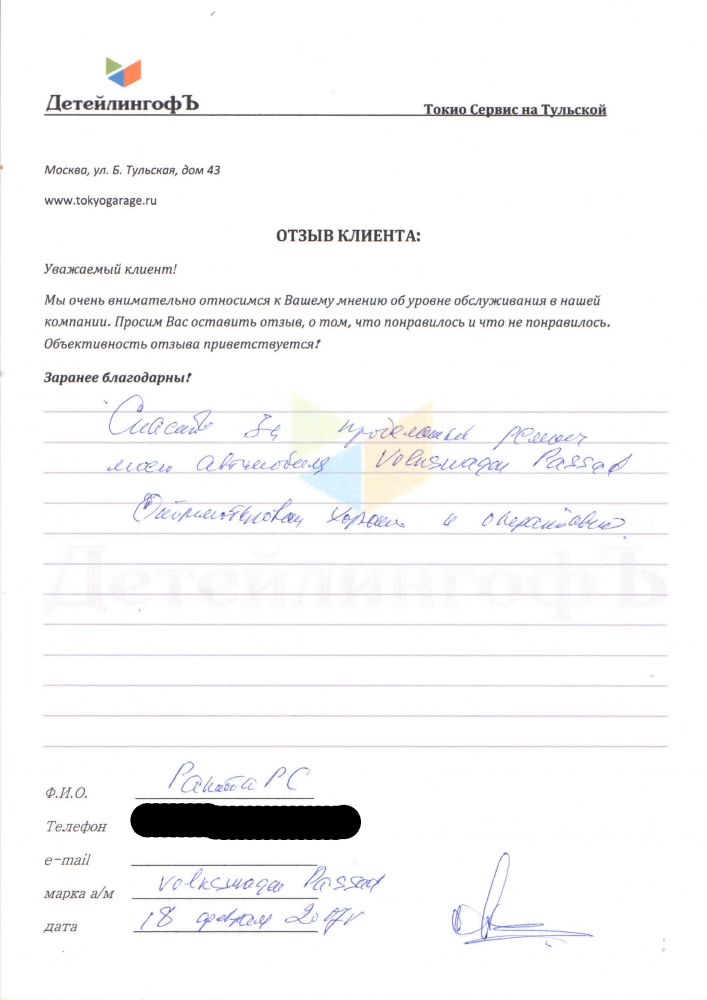 ДетейлингофЪ
Токио Сервис на Тульской
Москва, ул. Б. Тульская, дом 43
www.tokyogarage.ru
ОТЗЫВ КЛИЕНТА:
Уважаемый клиент!
Мы очень внимательно относимся к Вашему мнению об уровне обслуживания в нашей
компании. Просим Вас оставить отзыв, о том, что понравилось и что не понравилось.
Объективность отзыва приветствуется!
Заранее благодарны!
Спасибо за проделанный ремонт
моего автомобиля Volkswagen Passat
хорошо и оперативно.
ДетейлингофЪ
Ф.И.О. Ракита РС
Телефон
e-mail
марка а/м Volkswagen Passat
дата 18 февраля 2017г